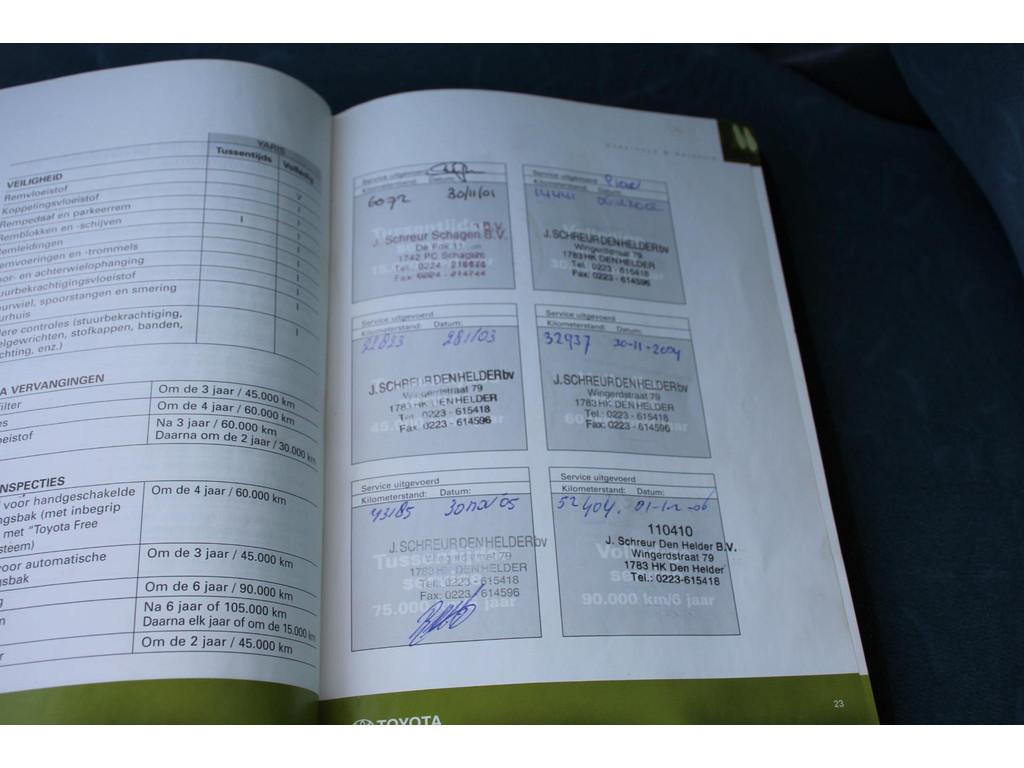 YARIS
Tussentijds Volledig
VEILIGHEID
Remvloeistof
Koppelingsvloeistof
Rempedaal en parkeerrem
Remblokken en -schijven
Remleidingen
emvoeringen en -trommels
oor- en achterwielophanging
uurbekrachtigingsvloeistof
urwiel, spoorstangen en smering
urhuis
dere controles (stuurbekrachtiging,
elgewrichten, stofkappen, banden,
chting, enz.)
A VERVANGINGEN
filter Om de 3 jaar / 45.000 km
es Om de 4 jaar / 60.000 km
oeistof Na 3 jaar / 60.000 km
Daarna om de 2 jaar / 30.000 km
NSPECTIES
voor handgeschakelde Om de 4 jaar / 60.000 km
ngsbak (met inbegrip
met "Toyota Free
steem)
voor automatische Om de 3 jaar / 45.000 km
gsbak
g Om de 6 jaar / 90.000 km
n Na 6 jaar of 105.000 km
Daarna elk jaar of om de 15.000 km
r Om de 2 jaar / 45.000 km
Service uitgevoerd
Kilometerstand: Datum:
6072 30/11/01
Tussentijds
J. Schreur Schagen B.V.
De Fok 11
1742 PC Schagen
Tel. 0224 -
Fax 0224 -
Service uitgevoerd
Kilometerstand: Datum:
14441
J. SCHREUR DEN HELDER bv
Wingerdstraat 79
1783 HK DEN HELDER
Tel.: 0223 - 615418
Fax: 0223 - 614596
Service uitgevoerd
Kilometerstand: Datum:
32823 281/03
J. SCHREUR DEN HELDER bv
Wingerdstraat 79
1783 HK DEN HELDER
Tel.: 0223 - 615418
Fax: 0223 - 614596
Service uitgevoerd
Kilometerstand: Datum:
32937 30-11-2004
J. SCHREUR DEN HELDER bv
Wingerdstraat 79
1783 HK DEN HELDER
Tel.: 0223 - 615418
Fax: 0223 - 614596
Service uitgevoerd
Kilometerstand: Datum:
43185 30 nov 05
J. SCHREUR DEN HELDER bv
Tussentijds
Wingerdstraat 79
1783 HK DEN HELDER
Tel.: 0223 - 615418
Fax: 0223 - 614596
75.000 jaar
Service uitgevoerd
Kilometerstand: Datum:
52404. 01-12-06
110410
J. Schreur Den Helder B.V.
Wingerdstraat 79
1783 HK Den Helder
Tel.: 0223-615418
90.000 km/6 jaar
TOYOTA
23